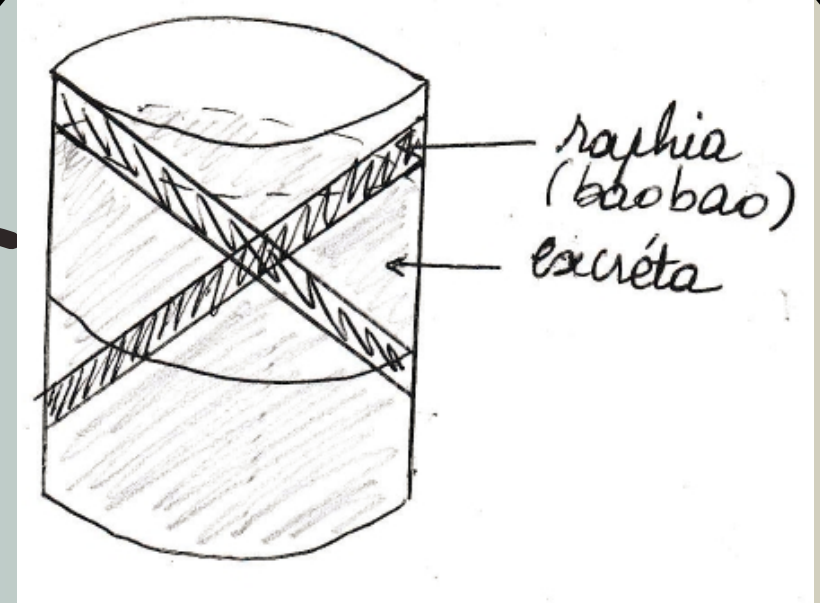 raphia
(baobao)
excréta